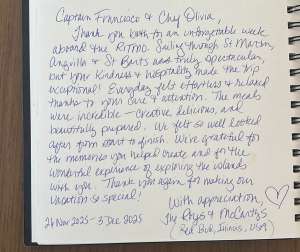 Captain Francisco & Chef Olivia,
Thank you both for an unforgettable week
aboard the RITMO. Sailing through St Marten,
Anguilla & St Barts was truly spectacular,
but your kindness & hospitality made the trip
exceptional! Everyday felt effortless & relaxed
thanks to your care & attention. The meals
were incredible – creative, delicious, and
beautifully prepared. We felt so well looked
after from start to finish. We're grateful for
the memories you helped create and for the
wonderful experience of exploring the islands
with you. Thank you again for making our
vacation so special!
With appreciation,
26 Nov 2025 - 3 Dec 2025
The & McCartys
(Red Bud, Illinois, USA)